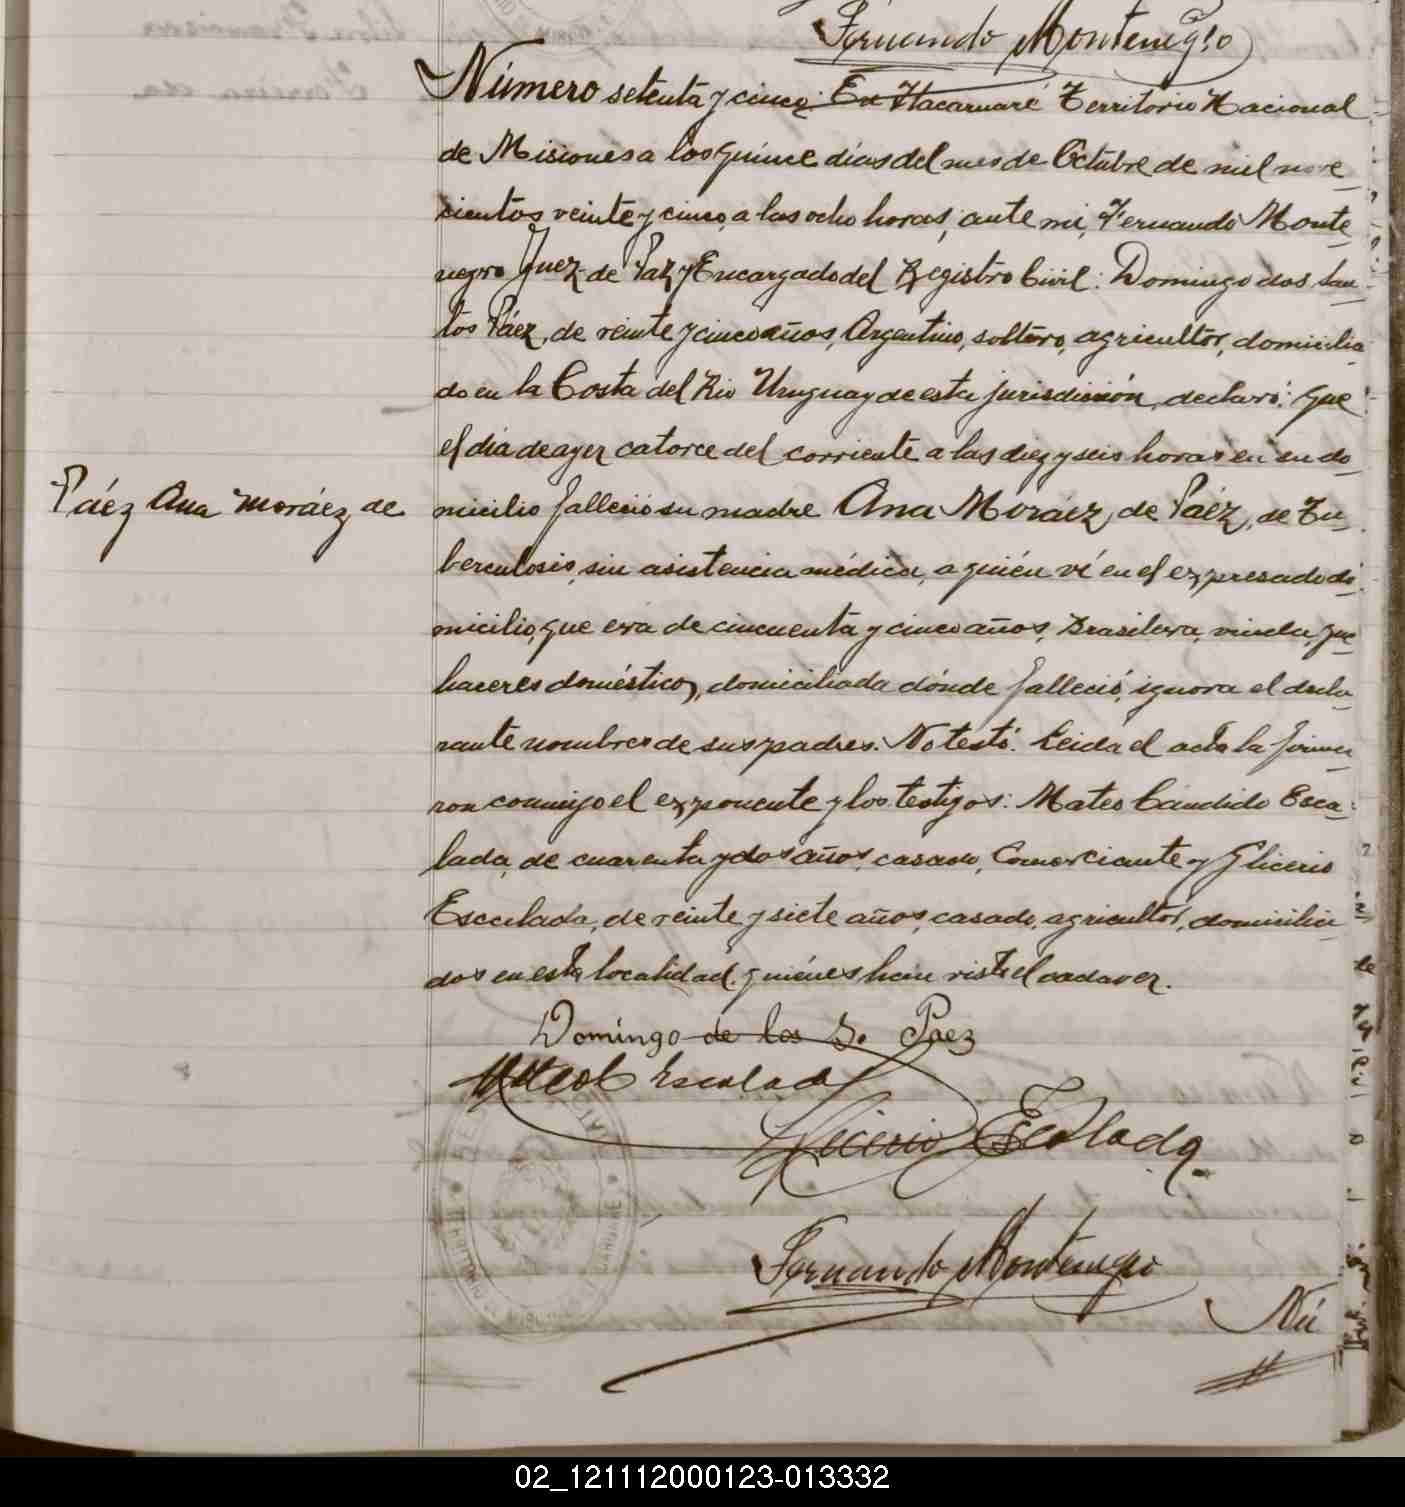 Fernando Montenegro
Número setenta y cinco: En Itacaruaré Territorio Nacional
de Misiones a los quince días del mes de Octubre de mil nove
cientos veinte y cinco, a las ocho horas, ante mi, Fernando Monte
negro Juez de Paz y Encargado del Registro Civil: Domingo dos San
tos Páez, de veinte y cinco años, Argentino, soltero, agricultor, domicilia
do en la Costa del Rio Uruguay de esta jurisdición, declaró: Que
el día de ayer catorce del corriente a las diez y seis horas en su do
micilio falleció su madre Ana Moráez de Páez, de Tu
berculosis, sin asistencia médica, a quién ví en el expresado do
micilio, que era de cincuenta y cinco años, Brasilera, viuda, que
haceres domésticos, domiciliada dónde falleció, ignora el decla
rante nombres de sus padres. No testó. Leida el acta la firma
ron conmigo el exponente y los testigos: Mateo Cándido Esca
lada, de cuarenta y dos años, casado, Comerciante y Glicerio
Escalada, de veinte y siete años, casado, agricultor, domicilia
dos en esta localidad, quiénes han visto el cadaver.
Páez Ana Moráez de
Domingo de los S. Paez
Mateo C Escalada
Glicerio Escalada
Fernando Montenegro
Nú
02_121112000123-013332